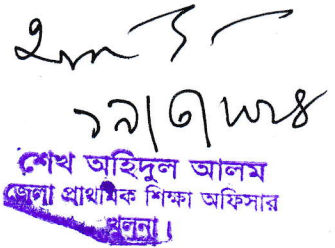 ১৯/৩/২০২৪
শেখ অহিদুল আলম
জেলা প্রাথমিক শিক্ষা অফিসার
খুলনা।